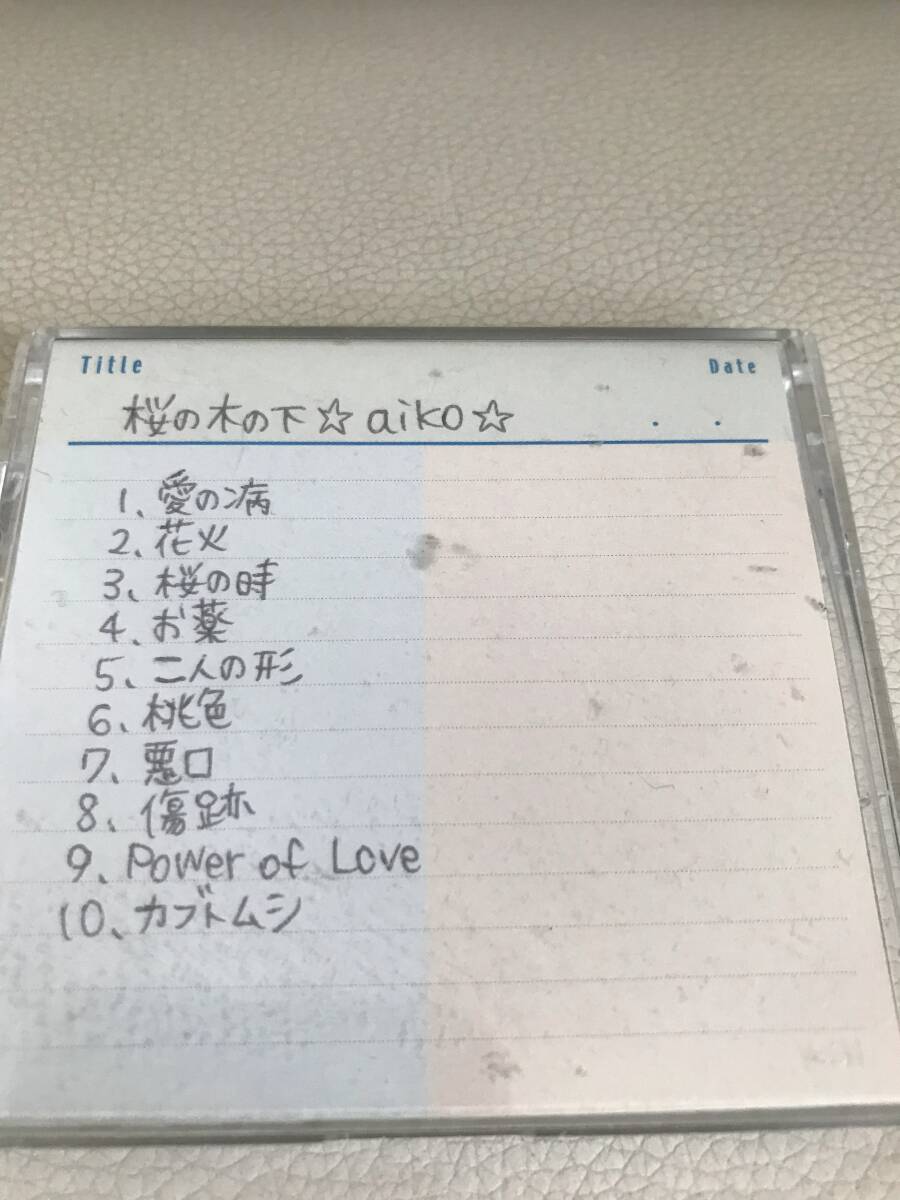 Title Date
桜の木の下☆aiko☆ . .
1、愛の病
2、花火
3、桜の時
4、お薬
5、二人の形
6、桃色
7、悪口
8、傷跡
9、Power of Love
10、カブトムシ